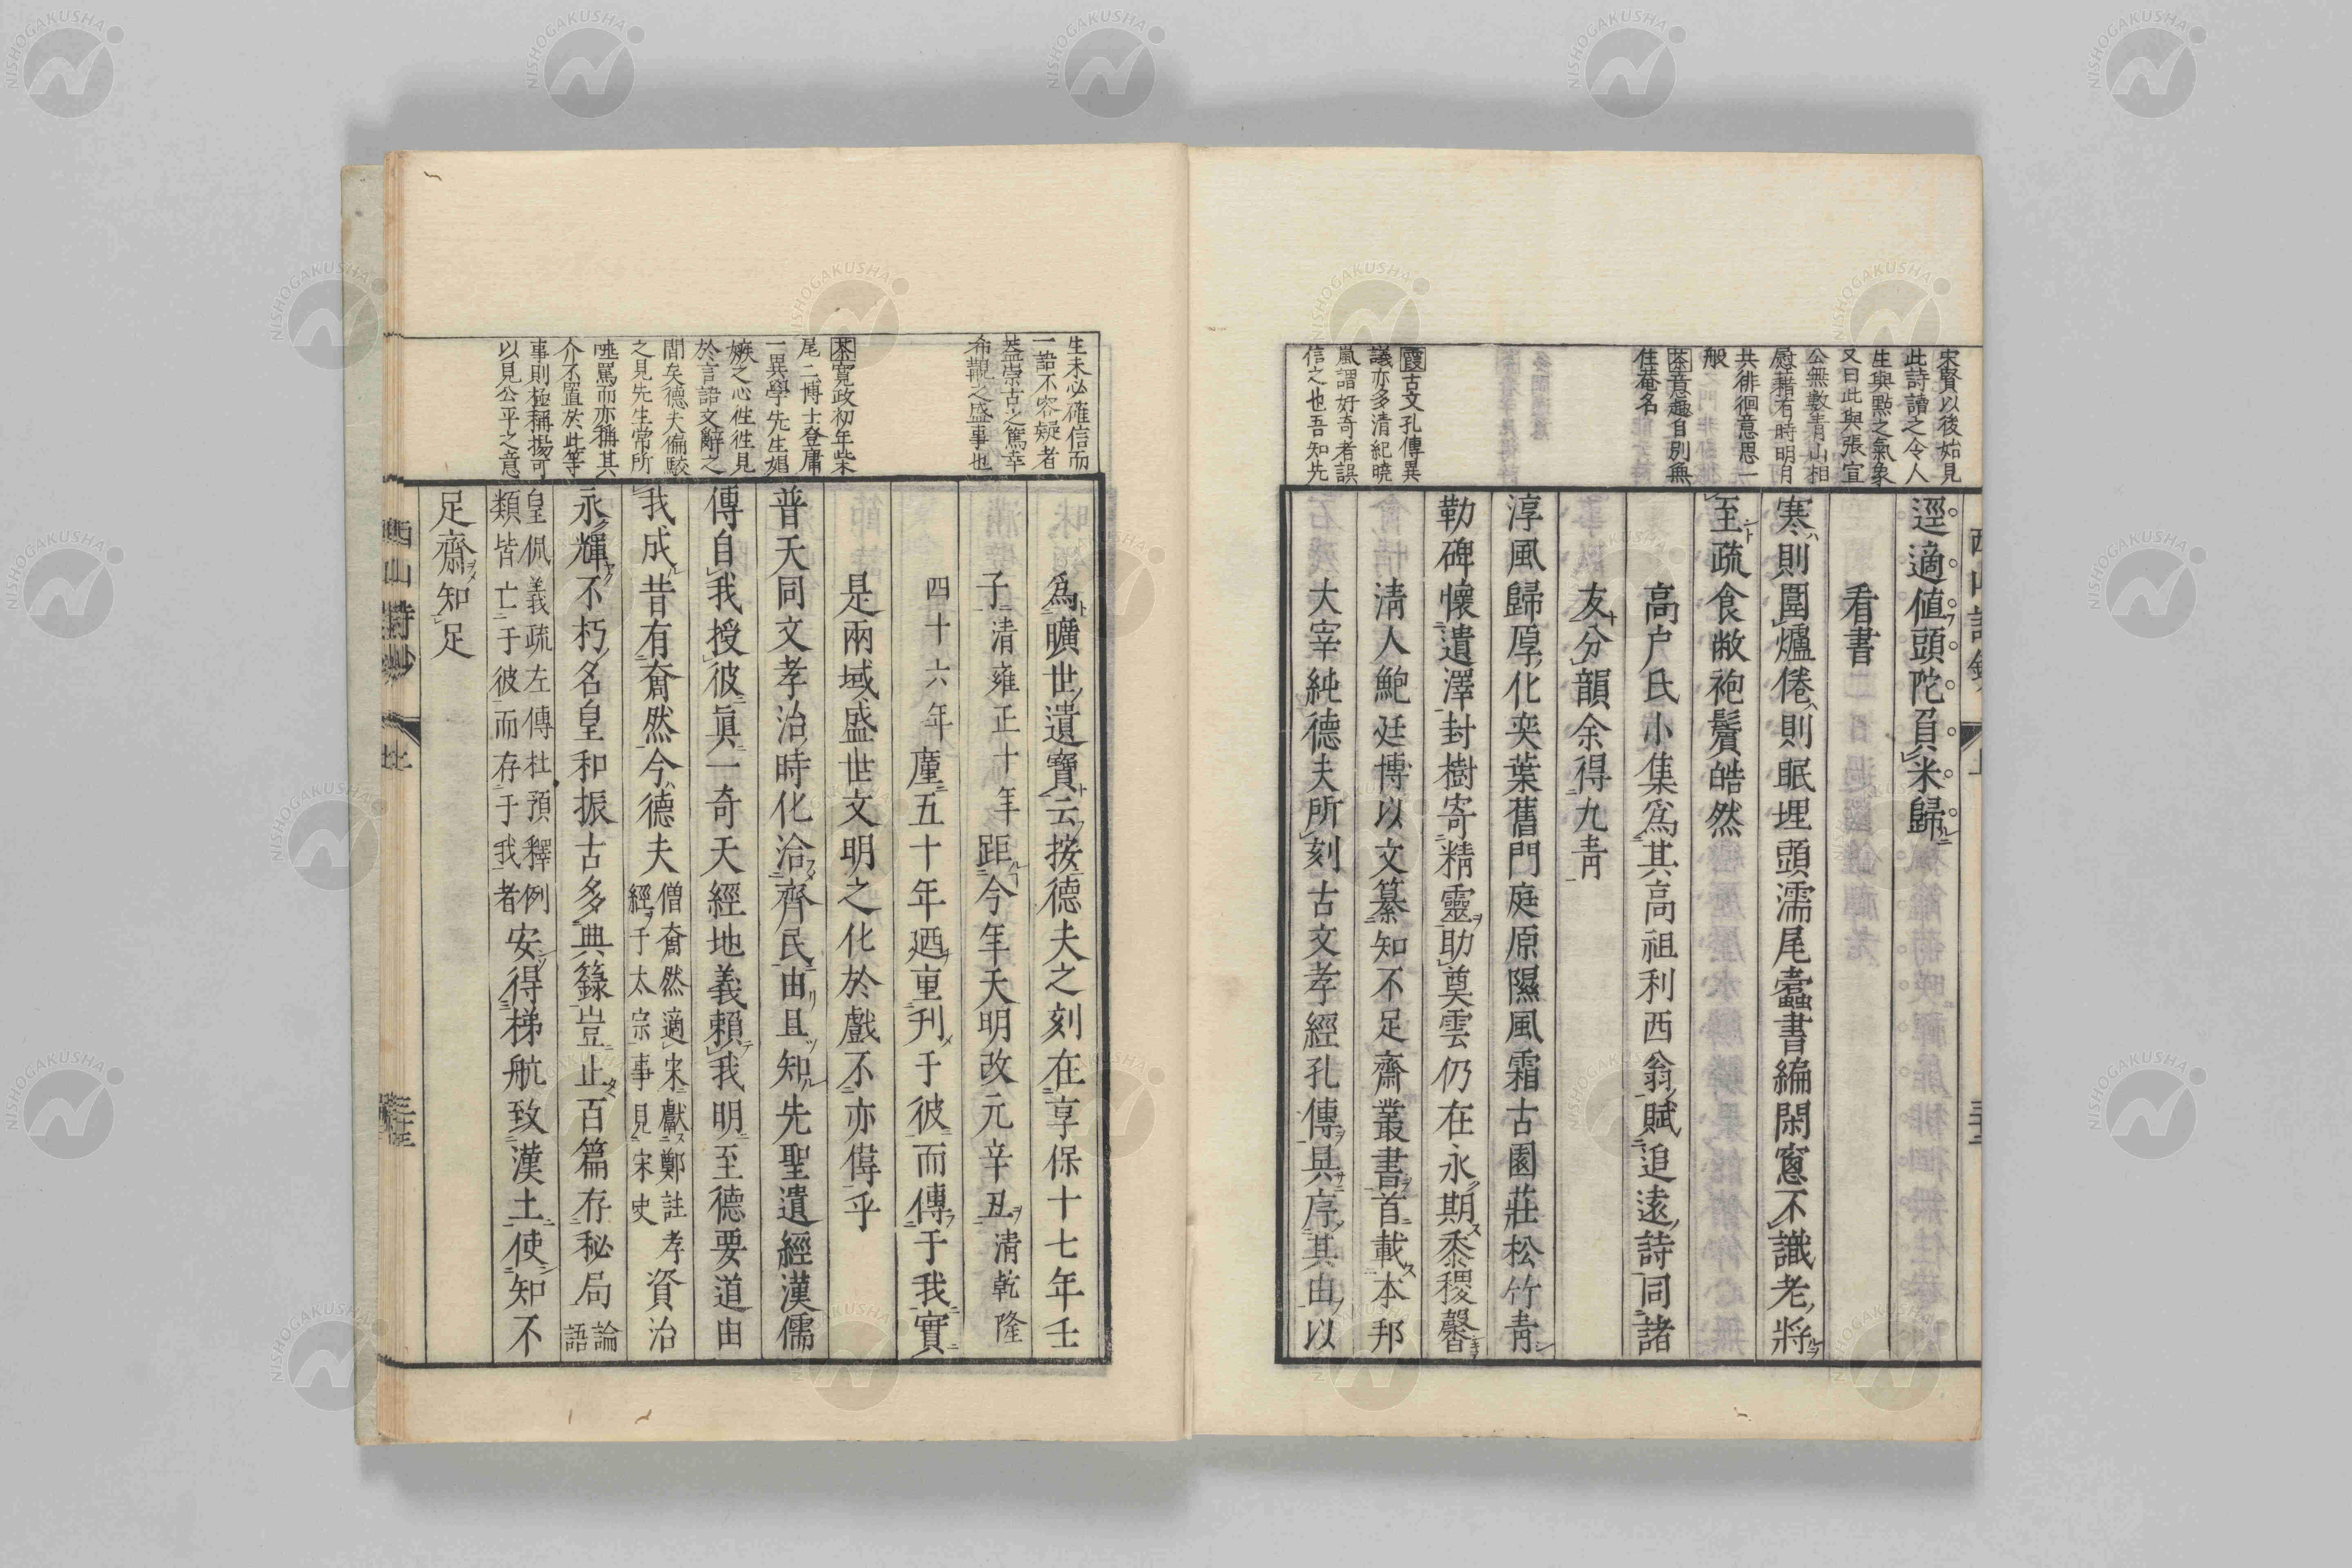 宋賢以後始見
此詩讀之令人
生與點之氣象
又曰此與張宣
公無數青山相
慰藉有時明月
共徘徊意思一
般
茶意趣自別無
住菴名
霞古文孔傳異
議亦多清紀曉
嵐謂好奇者誤
信之也吾知先
逕適値頭陀負米歸
看書
寒則圍爐倦則眠埋頭濡尾蠹書編閑窻不識老將
至疏食敝袍鬢皓然
高户氏小集爲其高祖利西翁賦追遠詩同諸
友分韻余得九青
淳風歸厚化奕葉舊門庭原隰風霜古園莊松竹青
勒碑懷遺澤封樹寄精靈助奠雲仍在永期黍稷馨
淸人鮑廷博以文纂知不足齋叢書首載本邦
大宰純德夫所刻古文孝經孔傳具序其由以
生未必確信而
一語不容疑者
葢崇古之篤幸
布觀之盛事也
茶寛政初年柴
尾二博士登庸
一異學先生娼
嫉之心徃徃見
於言語文辭之
間矣德夫偏駮
之見先生常所
咷罵而亦稱其
介不置於此等
事則極稱揚可
以見公平之意
爲曠世遺寶云按德夫之刻在享保十七年壬
子清雍正十年距今年天明改元辛丑清乾隆
四十六年廑五十年廼重刋于彼而傳于我實
是兩域盛世文明之化於戲不亦偉乎
普天同文孝治時化洽齊民由且知先聖遺經漢儒
傳自我授彼眞一奇天經地義賴我明至德要道由
我成昔有奝然今德夫僧奝然適宋獻鄭註孝
經于太宗事見宋史資治
永輝不朽名皇和振古多典籙豈止百篇存秘局論
語
皇侃義疏左傳杜預釋例
類皆亡于彼而存于我者安得梯航致漢土使知不
足齋知足
西山詩鈔